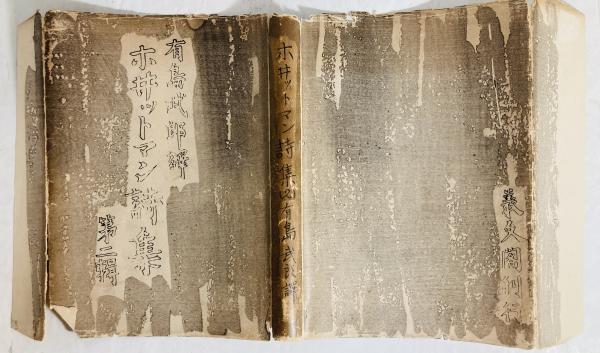 有島武郎譯
ホヰットマン詩集
第二輯
ホヰットマン詩集(2)有島武郎譯
叢文閣刊行